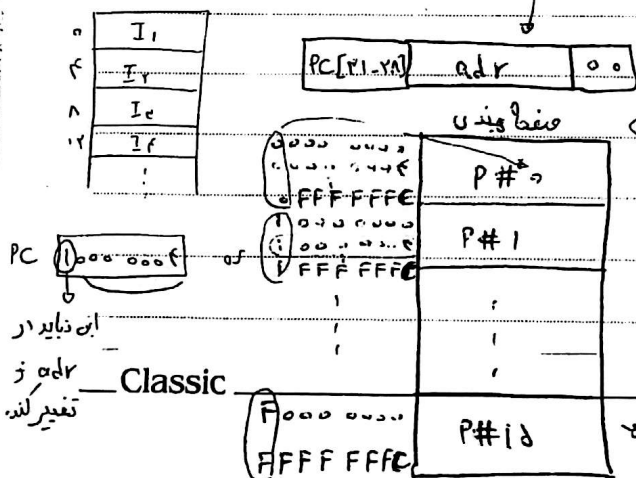 ۰ I۱
۴ I۲
۸ I۳
۱۲ I۴
PC[۳۱-۲۸] adr ۰۰
صفحه بندی
۰۰۰۰ ۰۰۰۰
۰۰۰۰ ۰۰۰۴
۰FFF FFFC
P#۰
۱۰۰۰ ۰۰۰۰
۱۰۰۰ ۰۰۰۴
۱FFF FFFC
P#۱
PC ۱۰۰۰ ۰۰۰۴
این نباید از
adr ز
تغییر کند.
Classic
F۰۰۰ ۰۰۰۰
FFFF FFFC
P#۱۵